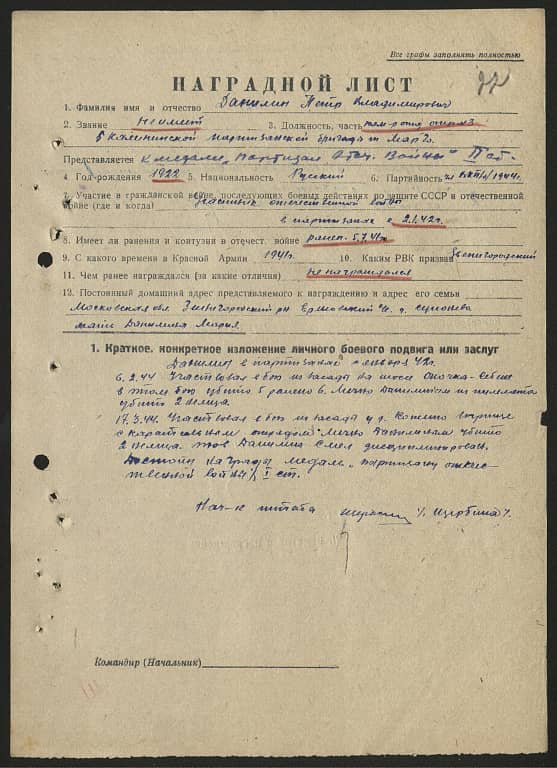 Все графы заполнять полностью
НАГРАДНОЙ ЛИСТ
1. Фамилия имя и отчество Данилин Петр Владимирович
2. Звание не имеет 3. Должность, часть
5 Калининской партизанской бригады
Представляется к медали "Партизан Отеч. Войны" II ст.
4. Год рождения 1922 5. Национальность Русский 6. Партийность 1944г.
7. Участие в гражданской войне, последующих боевых действиях по защите СССР и отечественной
войне (где и когда) участник отечественной войны
в партизанах с 2.1.42г.
8. Имеет ли ранения и контузии в отечест. войне ранен 5.7.41г.
9. С какого времени в Красной Армии 1941г. 10. Каким РВК призван Звенигородский
11. Чем ранее награждался (за какие отличия) не награждался
12. Постоянный домашний адрес представляемого к награждению и адрес его семьи
Московская обл. Звенигородский рн
мать Данилина Мария.
1. Краткое, конкретное изложение личного боевого подвига или заслуг
Данилин в партизанах с января 42г.
6.2.44 Участвовал в бою из засады на шоссе Опочка-Себеж
в этом бою убито 5 ранено 6. Лично Данилиным из пулемета
убито 2 немца.
17.3.44. Участвовал в бою из засады у д.
с карательным отрядом. Лично Данилиным убито
2 немца. тов Данилин смел дисциплинирован.
Достоин награды медаль "партизану отечес-
твенной войны" II ст.
Нач-к штаба /Щербина/.
Командир (Начальник)